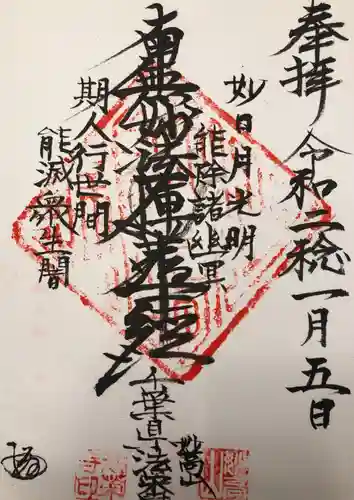 奉拝
令和二稔一月五日
妙日月光明
能除諸幽冥
南無妙法蓮華経
期人行世間
能滅衆生闇
千葉県